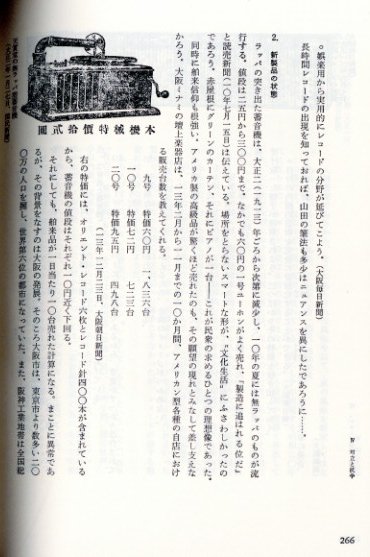 Ⅳ 対立と抗争
。娯楽用から実用的にレコードの分野が延びてこよう。（大阪毎日新聞）
長時間レコードの出現を知っておれば、山田の筆法も多少はニュアンスを異にしたであろうに……。
2. 新製品の状態
ラッパの突き出た蓄音機は、大正二（一九一三）年ごろから次第に減少し、一〇年の夏には無ラッパのものが流
行する。値段は二五円から三〇〇円まで、なかでも六〇円の一号ユーホンがよく売れ、『製造に追はれる位だ』
と読売新聞（一〇年七月一五日）は伝えている。場所をとらないスマートな形が、〝文化生活〟にふさわしかったの
であろう。赤屋根にグリーンのカーテン、それにピアノが一台――これが民衆の求めるひとつの理想像であった。
同時に舶来信仰も根強い。アメリカ製の高級品が驚くほど売れたのも、その願望の現れとみなして差し支えな
かろう。大阪ミナミの増上楽器店は、一三年二月から一一月までの一〇か月間、アメリカン型各種の自店におけ
る販売台数を教えてくれる。
九号 特価六〇円 一、八三六台
一〇号 特価七二円 七二三台
二〇号 特価九五円 四九八台
（一三年一二月二三日、大阪朝日新聞）
右の特価には、オリエント・レコード六枚とレコード針四〇〇本が含まれている
から、蓄音機の値段はそれぞれ一〇円近く下回る。
それにしても、舶来品が一日当たり一〇台売れた計算になる。まことに異常であ
るが、その背景をなすのは大阪の発展。そのころ大阪市は、東京市より数多い二〇
〇万の人口を擁し、世界第六位の都市になっていた。また、阪神工業地帯は全国総
本機械特價拾弐圓
266